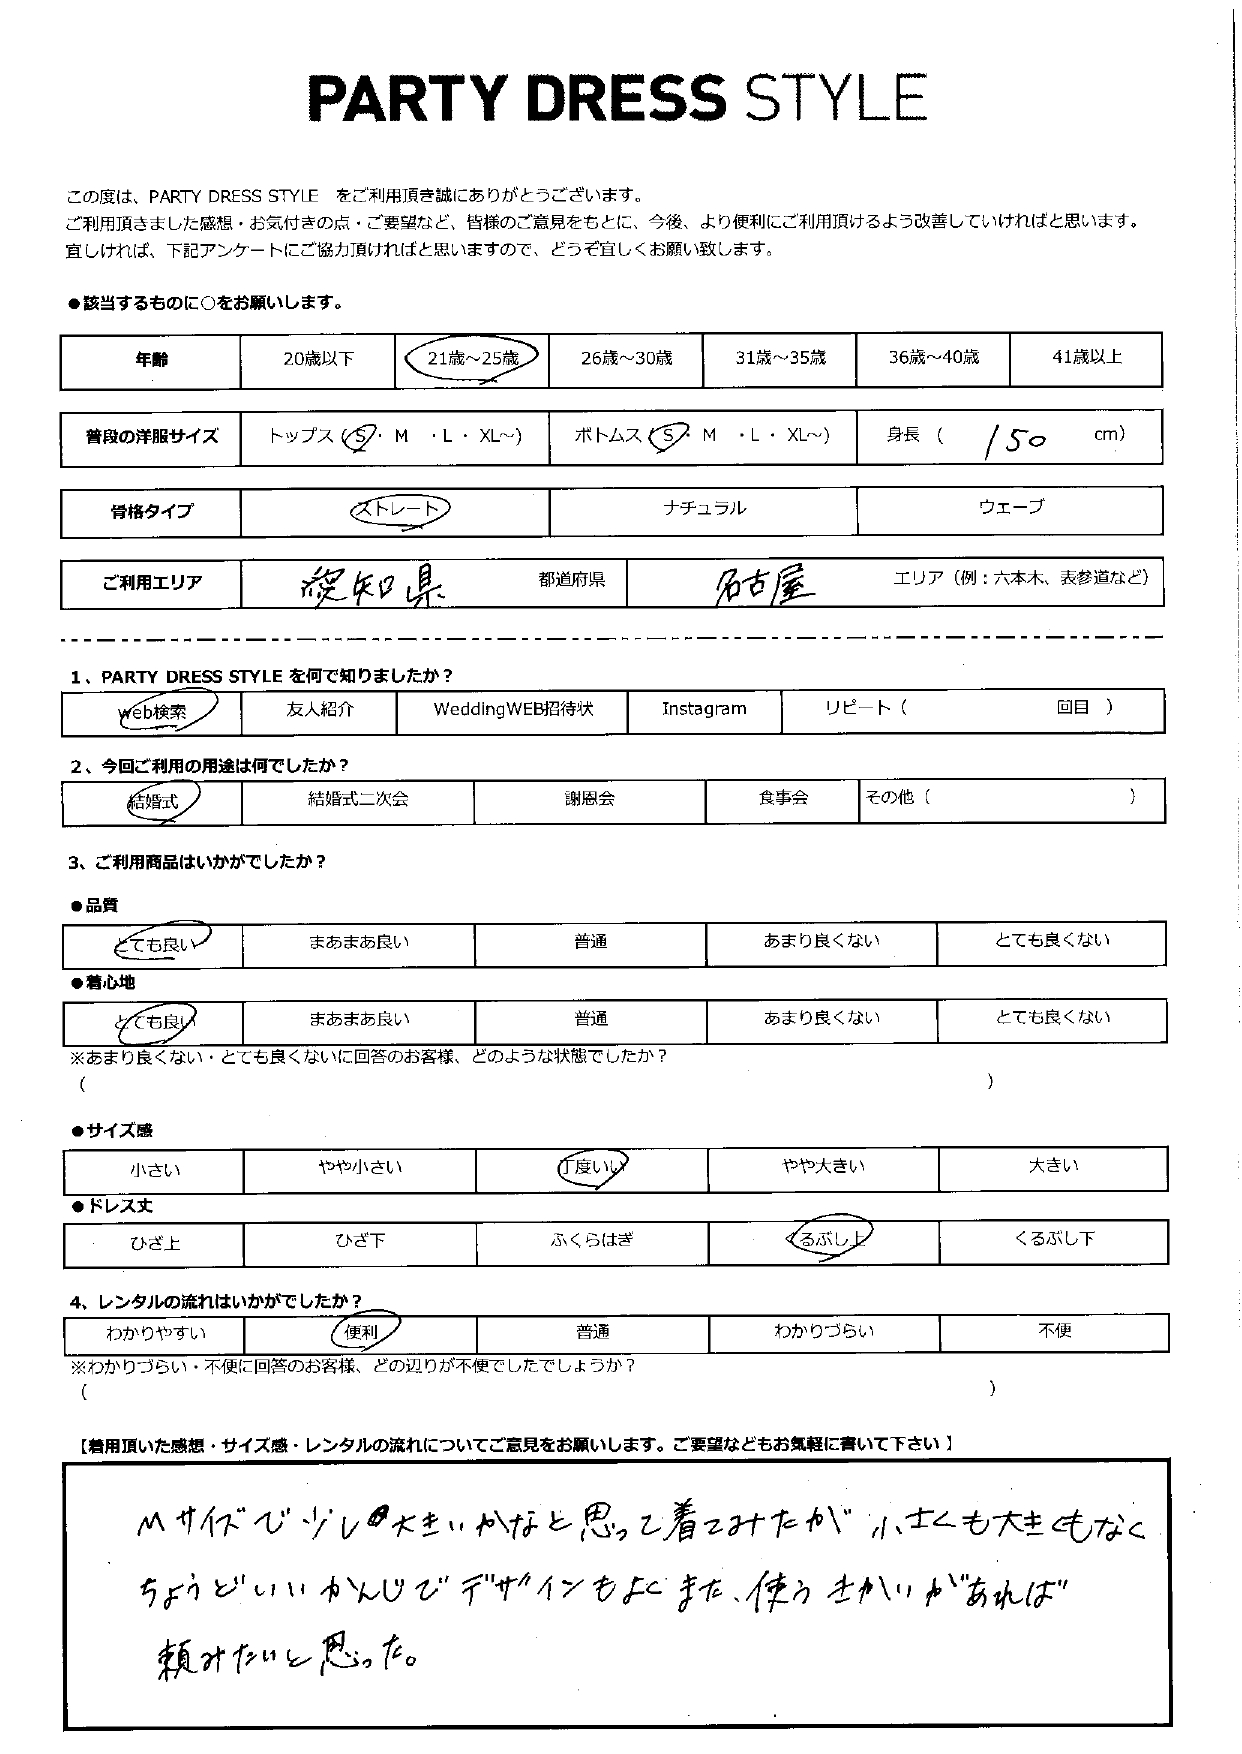 PARTY DRESS STYLE
この度は、PARTY DRESS STYLE をご利用頂き誠にありがとうございます。
ご利用頂きました感想・お気付きの点・ご要望など、皆様のご意見をもとに、今後、より便利にご利用頂けるよう改善していければと思います。
宜しければ、下記アンケートにご協力頂ければと思いますので、どうぞ宜しくお願い致します。
●該当するものに○をお願いします。
年齢 20歳以下 21歳～25歳 26歳～30歳 31歳～35歳 36歳～40歳 41歳以上
普段の洋服サイズ トップス (S・ M ・L・ XL～) ボトムス (S・ M ・L・ XL～) 身長 ( 150 cm)
骨格タイプ ストレート ナチュラル ウェーブ
ご利用エリア 愛知県 都道府県 名古屋 エリア（例：六本木、表参道など）
1、PARTY DRESS STYLE を何で知りましたか？
web検索 友人紹介 WeddingWEB招待状 Instagram リピート（ 回目 ）
2、今回ご利用の用途は何でしたか？
結婚式 結婚式二次会 謝恩会 食事会 その他（ ）
3、ご利用商品はいかがでしたか？
●品質
とても良い まあまあ良い 普通 あまり良くない とても良くない
●着心地
とても良い まあまあ良い 普通 あまり良くない とても良くない
※あまり良くない・とても良くないに回答のお客様、どのような状態でしたか？
( )
●サイズ感
小さい やや小さい 丁度いい やや大きい 大きい
●ドレス丈
ひざ上 ひざ下 ふくらはぎ くるぶし上 くるぶし下
4、レンタルの流れはいかがでしたか？
わかりやすい 便利 普通 わかりづらい 不便
※わかりづらい・不便に回答のお客様、どの辺りが不便でしたでしょうか？
( )
【着用頂いた感想・サイズ感・レンタルの流れについてご意見をお願いします。ご要望などもお気軽に書いて下さい 】
Mサイズで少し大きいかなと思って着てみたが 小さくも大きくもなく
ちょうどいいかんじでデザインもよくまた、使うきかいがあれば
頼みたいと思った。